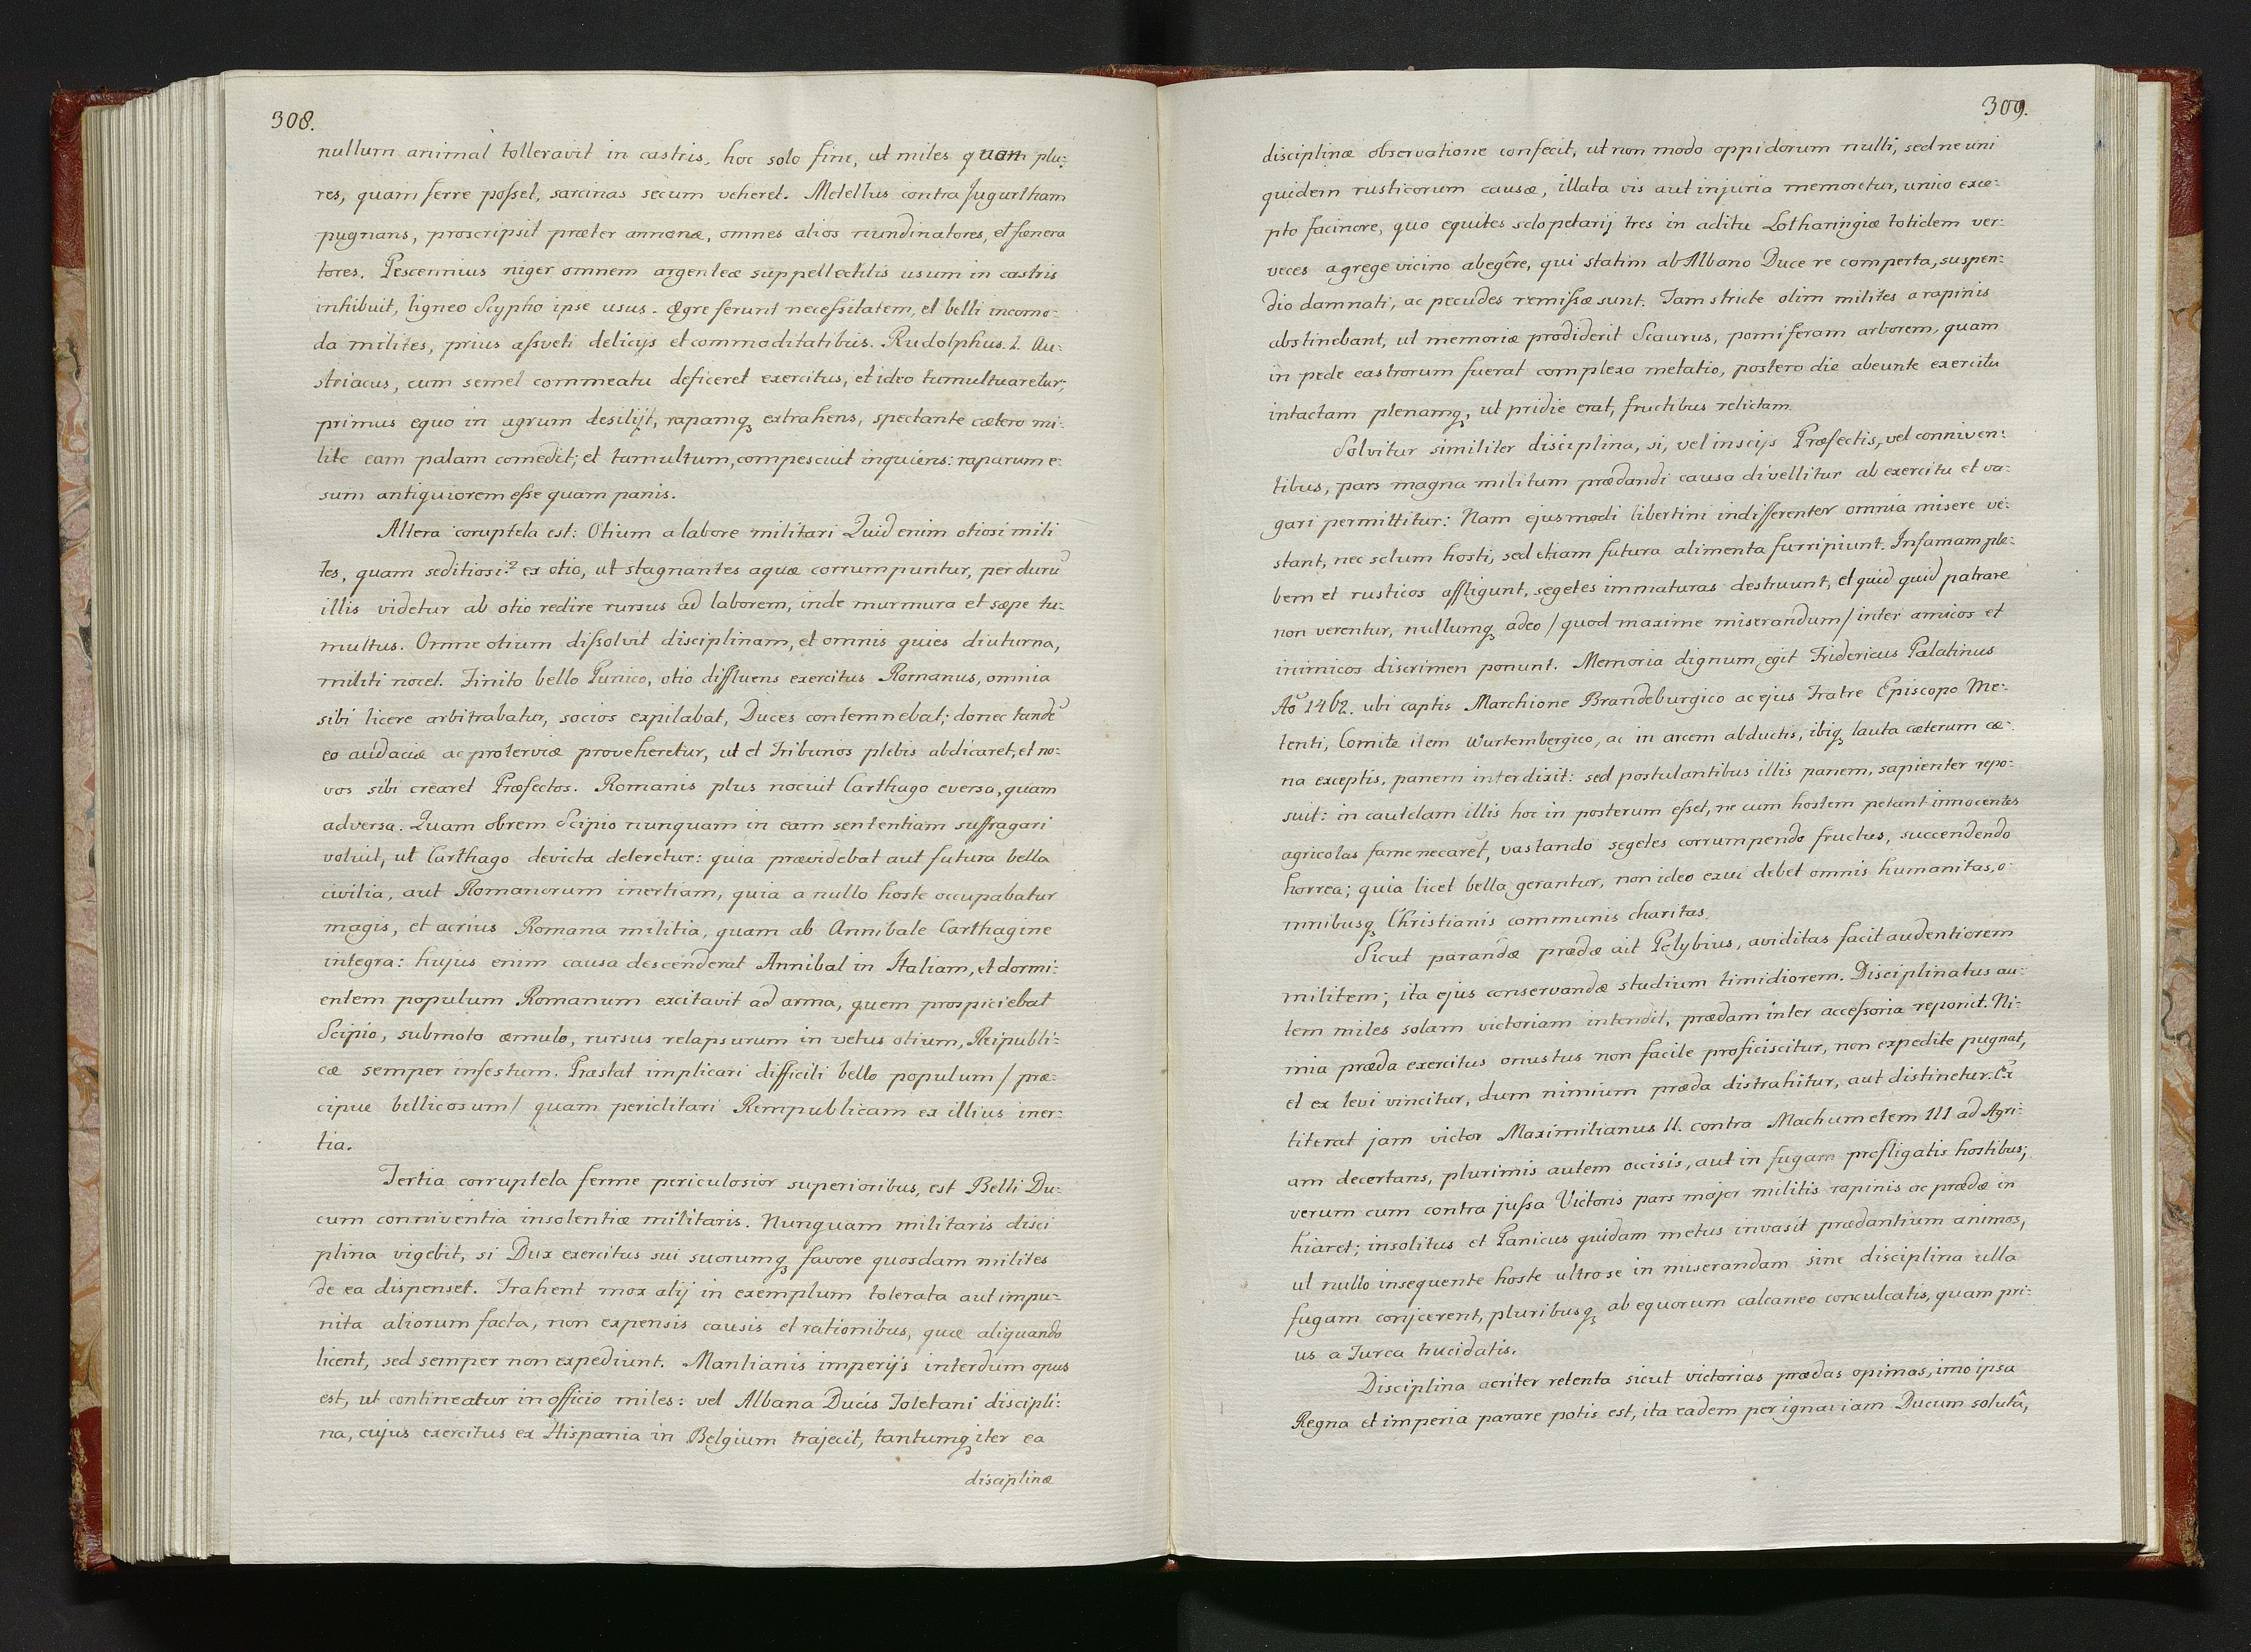 308.
nullum animal tolleravit in castris, hoc solo fine, ut miles quam plu:
res, quam ferre poſset, sarcinas secum veheret. Metellus contra Jugurtham
pugnans, proscripsit præter annonæ, omnes alios nundinatores, et fœnera
tores. Pescennius niger omnem argenteæ suppellectilis usum in castris
inhibuit, ligneo Scypho ipse usus. Ægre ferunt neceſsitatem, et belli incomo:
da milites, prius aſsveti delicijs et commoditatibus. Rudolphus. I. Au:
striacus, cum semel commeatu deficeret exercitus, et ideo tumultuaretur;
primus equo in agrum desilijt, rapamq₃ extrahens, spectante cætero mi:
lite eam palam comedit; et tumultum, compescuit inquiens: raparum e:
sum antiquiorem eſse quam panis.
Altera coruptela est: Otium a labore militari Quid enim otiosi mili
tes, quam seditiosi? ex otio, ut stagnantes aquæ corrumpuntur, per durū
illis videtur ab otio redire rursus ad laborem, inde murmura et sæpe tu:
multus. Omne otium diſsolvit disciplinam, et omnis quies diuturna,
militi nocet. Finito bello Punico, otio diffluens exercitus Romanus, omnia
sibi licere arbitrabatur, socios expilabat, Duces contemnebat; donec tandē
eo audaciæ ac proterviæ proveheretur, ut et Tribunos plebis abdicaret, et no:
vos sibi crearet Præfectos. Romanis plus nocuit Carthago eversa, quam
adversa. Quam obrem Scipio nunquam in eam sententiam suffragari
voluit, ut Carthago devicta deleretur: quia prævidebat aut futura bella
civilia, aut Romanorum inertiam, quia a nullo hoste occupabatur
magis, et acrius Romana militia, quam ab Annibale Carthagine
integra: hujus enim causa descenderat Annibal in Italiam, et dormi:
entem populum Romanum excitavit ad arma, quem prospiciebat
Scipio, submoto æmulo, rursus relapsurum in vetus otium, Reipubli:
cæ semper infestum. Præstat implicari difficili bello populum / præ:
cipue bellicosum / quam periclitari Rempublicam ex illius iner:
tia.
Tertia corruptela ferme periculosior superioribus, est Belli Du:
cum conniventia insolentiæ militaris. Nunquam militaris disci
plina vigebit, si Dux exercitus sui suorumq₃ favore quosdam milites
de ea dispenset. Trahent mox alij in exemplum tolerata aut impu:
nita aliorum facta, non expensis causis et rationibus, quæ aliquando
licent, sed semper non expediunt. Manlianis imperijs interdum opus
est, ut contineatur in officio miles: vel Albana Ducis Toletani discipli:
na, cujus exercitus ex Hispania in Belgium trajecit, tantumq₃ iter ea
disciplinæ
309.
disciplinæ observatione confecit, ut non modo oppidorum nulli, sed ne uni
quidem rusticorum causæ, illata vis aut injuria memoretur, unico exce:
pto facinore, quo equites sclopetarij tres in aditu Lotharingiæ totidem ver:
veces a grege vicino abegêre, qui statim ab Albano Duce re comperta, suspen:
dio damnati, ac pecudes remiſsæ sunt. Tam stricte olim milites a rapinis
abstinebant, ut memoriæ prodiderit Scaurus, pomiferam arborem, quam
in pede castrorum fuerat complexa metatio, postero die abeunte exercitu
intactam plenamq₃, ut pridie erat, fructibus relictam.
Solvitur similiter disciplina, si, vel inscijs Præfectis, vel conniven:
tibus, pars magna militum prædandi causa divellitur ab exercitu et va:
gari permittitur: Nam ejusmodi libertini indifferenter omnia misere ve:
stant, nec solum hosti, sed etiam futura alimenta surripiunt. Infamam ple:
bem et rusticos affligunt, segetes immaturas destruunt, et quid quid patrare
non verentur, nullumq₃ adeo / quod maxime miserandum / inter amicos et
inimicos discrimen ponunt. Memoria dignum egit Fridericus Palatinus
Aō 1462. ubi captis Marchione Brandeburgico ac ejus Fratre Episcopo Me:
tenti, Comite item Wurtembergico, ac in arcem abductis, ibiq₃ lauta cæterum cæ:
na exceptis, panem interdixit: sed postulantibus illis panem, sapienter repo:
suit: in cautelam illis hoc in posterum eſset, ne cum hostem petant innocentes
agricolas fame necaret, vastando segetes corrumpendo fructus, succendendo
horrea; quia licet bella gerantur, non ideo exui debet omnis humanitas, o:
mnibusq₃ Christianis communis charitas.
Sicut parandæ prædæ ait Polybius, aviditas facit audentiorem
militem; ita ejus conservandæ studium timidiorem. Disciplinatus au:
tem miles solam victoriam intendit, prædam inter acceſsoria reponit. Ni:
mia præda exercitus onustus non facile proficiscitur, non expedite pugnat,
et ex levi vincitur, dum nimium præda distrahitur, aut distinetur. Ex
titerat jam victor Maximilianus II. contra Machumetem III ad Agri:
am decertans, plurimis autem occisis, aut in fugam profligatis hostibus;
verum cum contra juſsa Victoris pars major militis rapinis ac prædæ in
hiaret; insolitus et Panicus quidam metus invasit prædantium animos,
ut nullo insequente hoste ultro se in miserandam sine disciplina ulla
fugam conjcerent, pluribusq₃ ab equorum calcaneo conculcatis, quam pri:
us a Turca trucidatis.
Disciplina acriter retenta sicut victorias prædas opimas, imo ipsa
Regna et imperia parare potis est, ita eadem per ignaviam Ducum solutâ,